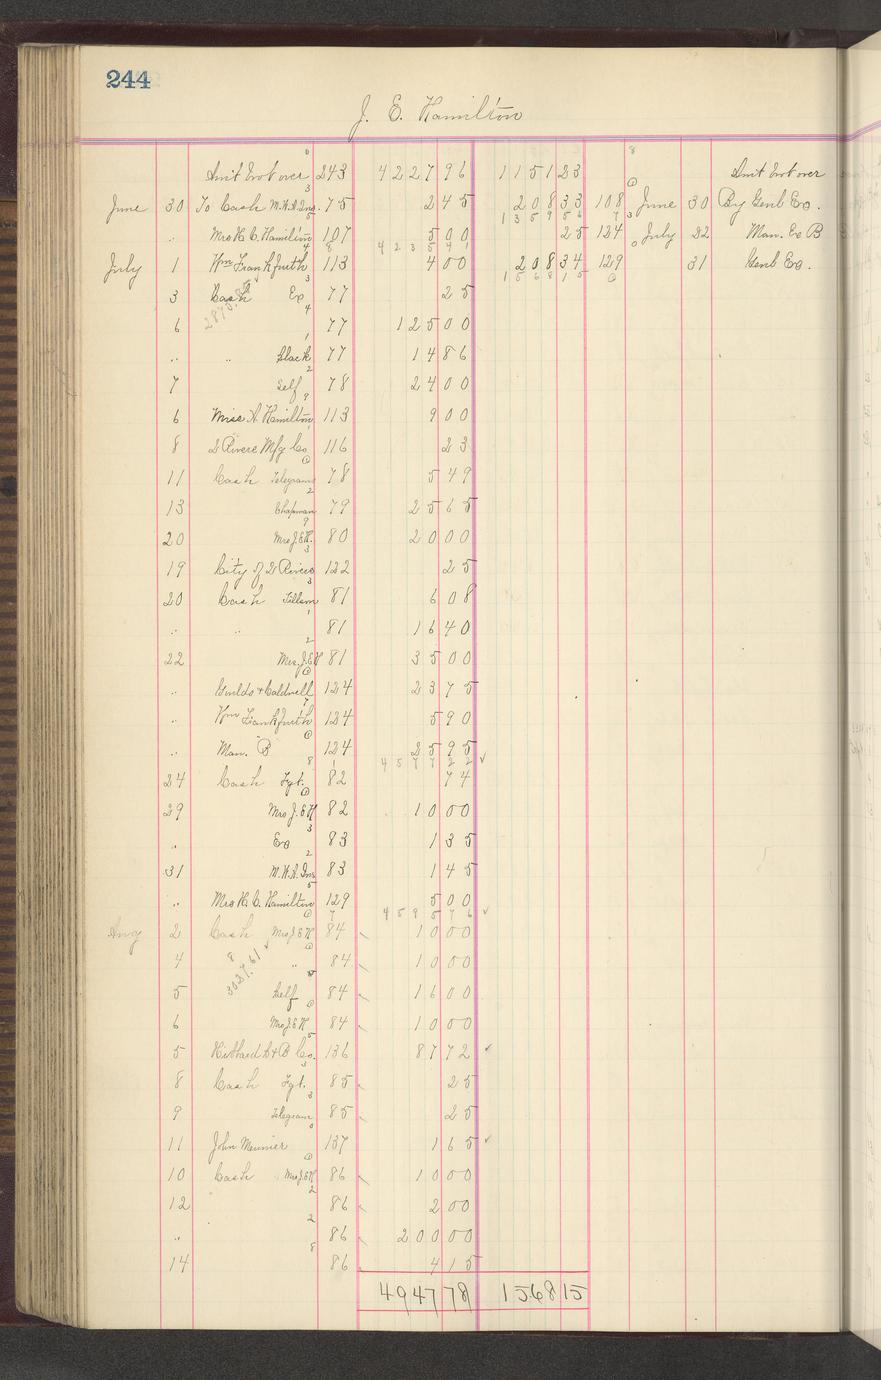 244
J. E. Hamilton
Am't brot over 243 4227 96 1151 23 Amt brot over
June 30 To Cash M.H.A. Ins. 75 2 45 208 33 108 June 30 By Genl Ex.
1359 56
" Mrs H. C. Hamilton 107 5 00 25 124 July 22 Man. Ex B
4235 41
July 1 Wm Frankfurth 113 4 00 208 34 129 31 Genl Ex.
1568 15
3 Cash Ex 77 25
6 77 125 00
" " Black 77 14 86
7 Self 78 24 00
6 Miss A Hamilton 113 9 00
8 2 Rivers Mfg Co 116 23
11 Cash Telegrams 78 5 49
13 Chapman 79 25 65
20 Mrs J.E.H. 80 20 00
19 City of 2 Rivers 122 25
20 Cash 81 6 08
" " 81 16 40
22 Mrs. J.E.H 81 35 00
" Goulds & Caldwell 124 23 75
" Wm Frankfurth 124 5 90
" Man. B 124 25 95
4577 22
24 Cash Fgt. 82 74
29 Mrs J. E H 82 10 00
" Ex 83 1 35
31 M.H.A. Ins 83 1 45
" Mrs H. C. Hamilton 129 5 00
4595 76
Aug 2 Cash Mrs J E H 84 10 00
4 " 84 10 00
3027.61
5 Self 84 16 00
6 Mrs J.E H. 84 10 00
5 Hibbard & B Co. 136 87 72
8 Cash Fgt. 85 25
9 Telegram 85 25
11 John Meunier 137 1 65
10 Cash Mrs J.E.H 86 10 00
12 86 2 00
" 86 200 00
14 86 4 15
4947 78 1568 15